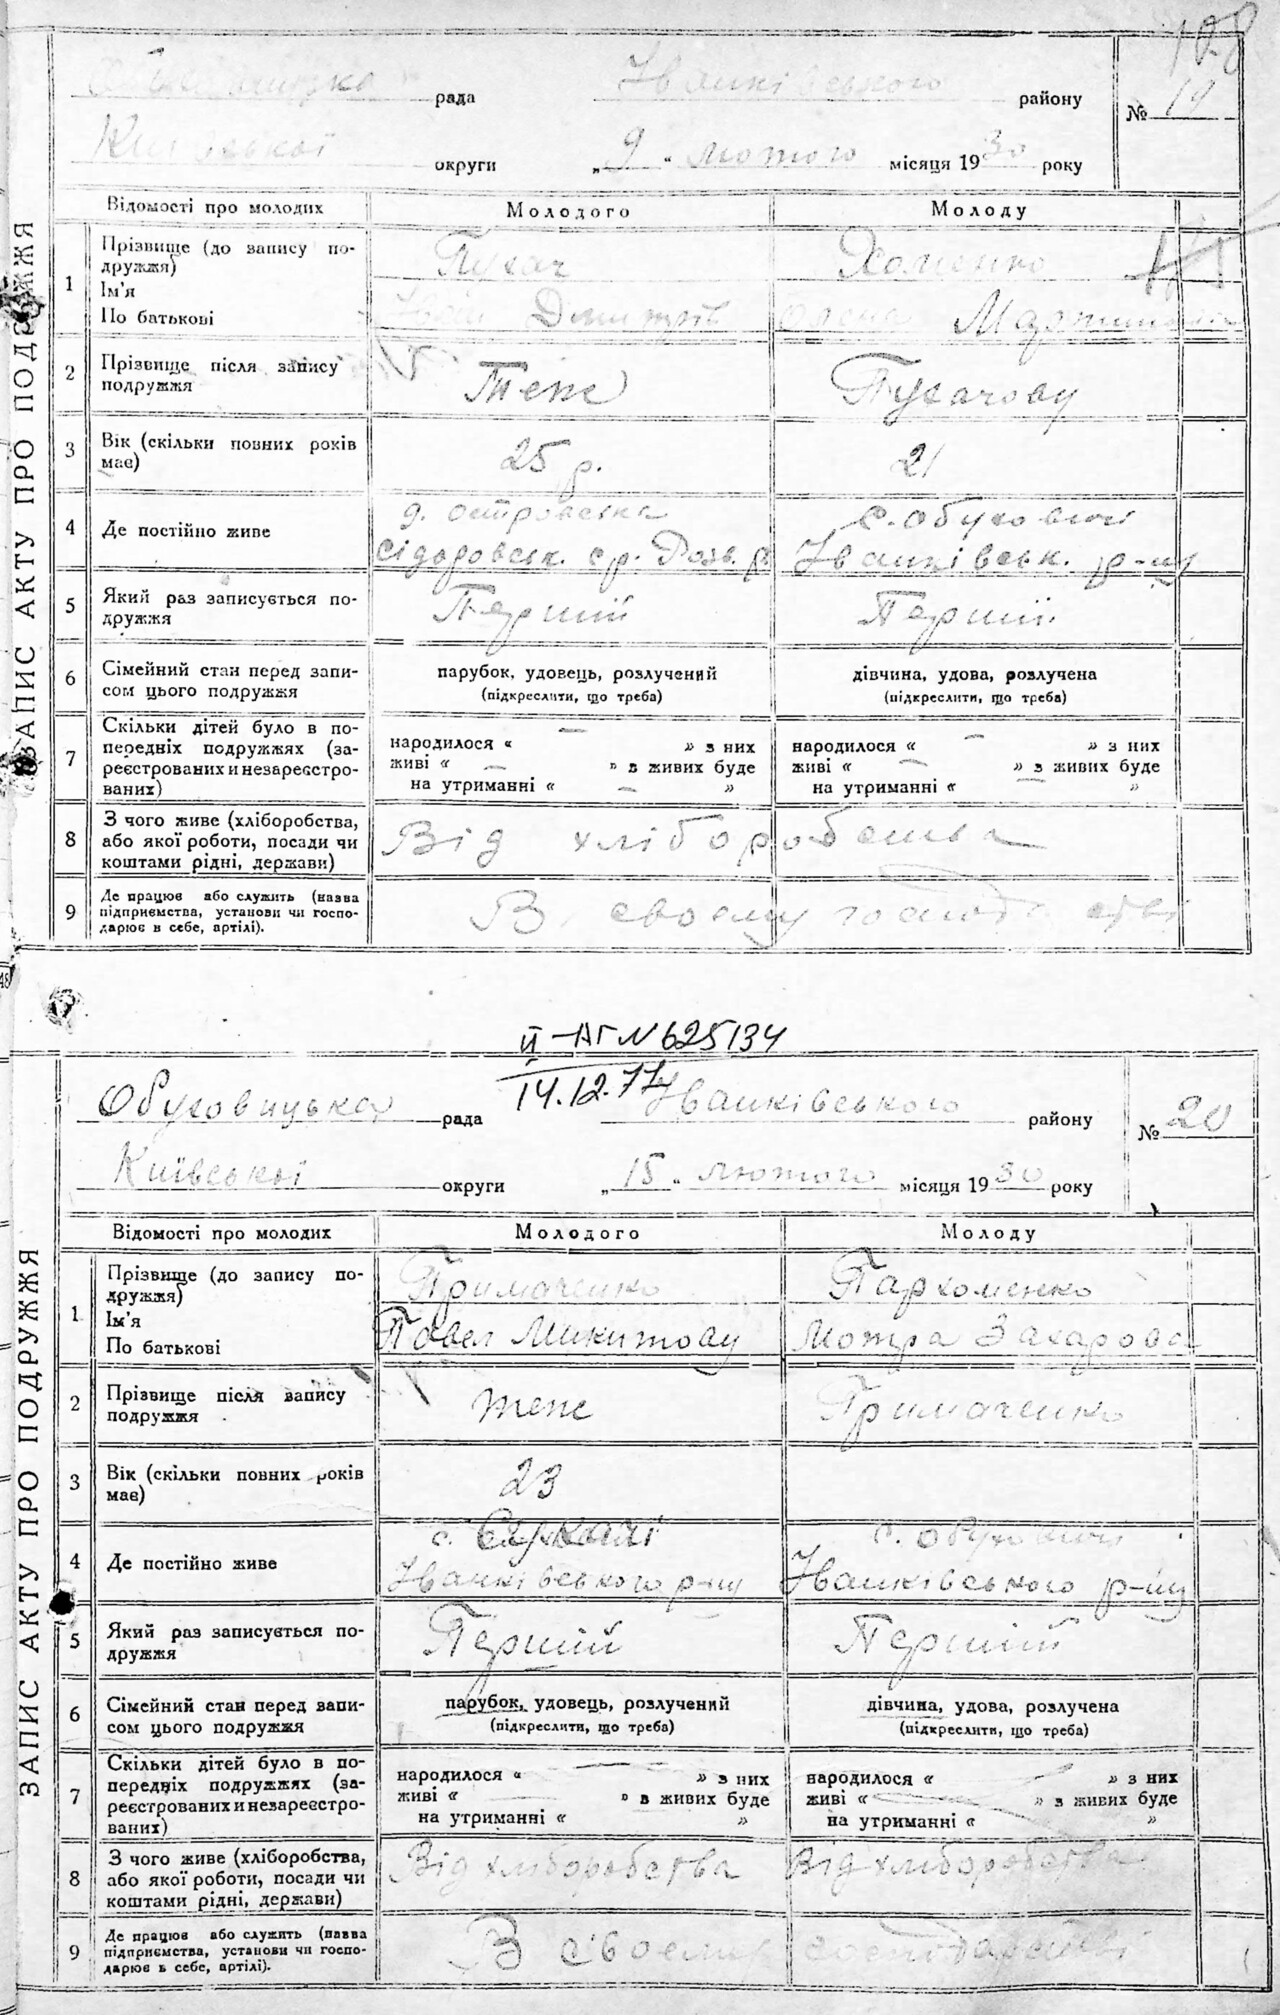 108
рада Іванківського району № 19
Київської округи „9“ лютого місяця 1930 року
ЗАПИС АКТУ ПРО ПОДРУЖЖЯ
Відомості про молодих Молодого Молоду
1 Прізвище (до запису по-
дружжя)
Ім'я
По батькові
Пухач Хоменко
Дмитрів Олена
2 Прізвище після запису
подружжя
Теж Пухачову
3 Вік (скільки повних років
має)
25 р. 21
4 Де постійно живе
д. островська с. Обуховичі
сідоровськ. с/р. Розв. р. Іванківськ. р-ну
5 Який раз записується по-
дружжя
Перший Перший
6 Сімейний стан перед запи-
сом цього подружжя
парубок, удовець, розлучений дівчина, удова, розлучена
(підкреслити, що треба) (підкреслити, що треба)
7 Скільки дітей було в по-
передніх подружжях (за-
реєстрованих и незареєстро-
ваних)
народилося “ — ” з них народилося “ — ” з них
живі “ — ” в живих буде живі “ — ” з живих буде
на утриманні “ — ” на утриманні “ — ”
8 З чого живе (хліборобства,
або якої роботи, посади чи
коштами рідні, держави)
Від хліборобства
9 Де працює або служить (назва
підприємства, установи чи госпо-
дарює в себе, артілі).
В своєму господарстві
48
ІІ-АГ № 625134
14.12.77
Обуховицька рада Іванківського району № 20
Київської округи „15“ лютого місяця 1930 року
ЗАПИС АКТУ ПРО ПОДРУЖЖЯ
Відомості про молодих Молодого Молоду
1 Прізвище (до запису по-
дружжя)
Ім'я
По батькові
Примаченко Пархоменко
Павел Микитову Мотра Захарова
2 Прізвище після запису
подружжя
теж Примаченко
3 Вік (скільки повних років
має)
23
4 Де постійно живе
с. Сукачі с. Обуховичі
Іванківського р-ну Іванківського р-ну
5 Який раз записується по-
дружжя
Перший Перший
6 Сімейний стан перед запи-
сом цього подружжя
парубок, удовець, розлучений дівчина, удова, розлучена
(підкреслити, що треба) (підкреслити, що треба)
7 Скільки дітей було в по-
передніх подружжях (за-
реєстрованих и незареєстро-
ваних)
народилося “ ” з них народилося “ ” з них
живі “ ” в живих буде живі “ ” з живих буде
на утриманні “ ” на утриманні “ ”
8 З чого живе (хліборобства,
або якої роботи, посади чи
коштами рідні, держави)
Від хліборобства Від хліборобства
9 Де працює або служить (назва
підприємства, установи чи госпо-
дарює в себе, артілі).
В своєму господарстві